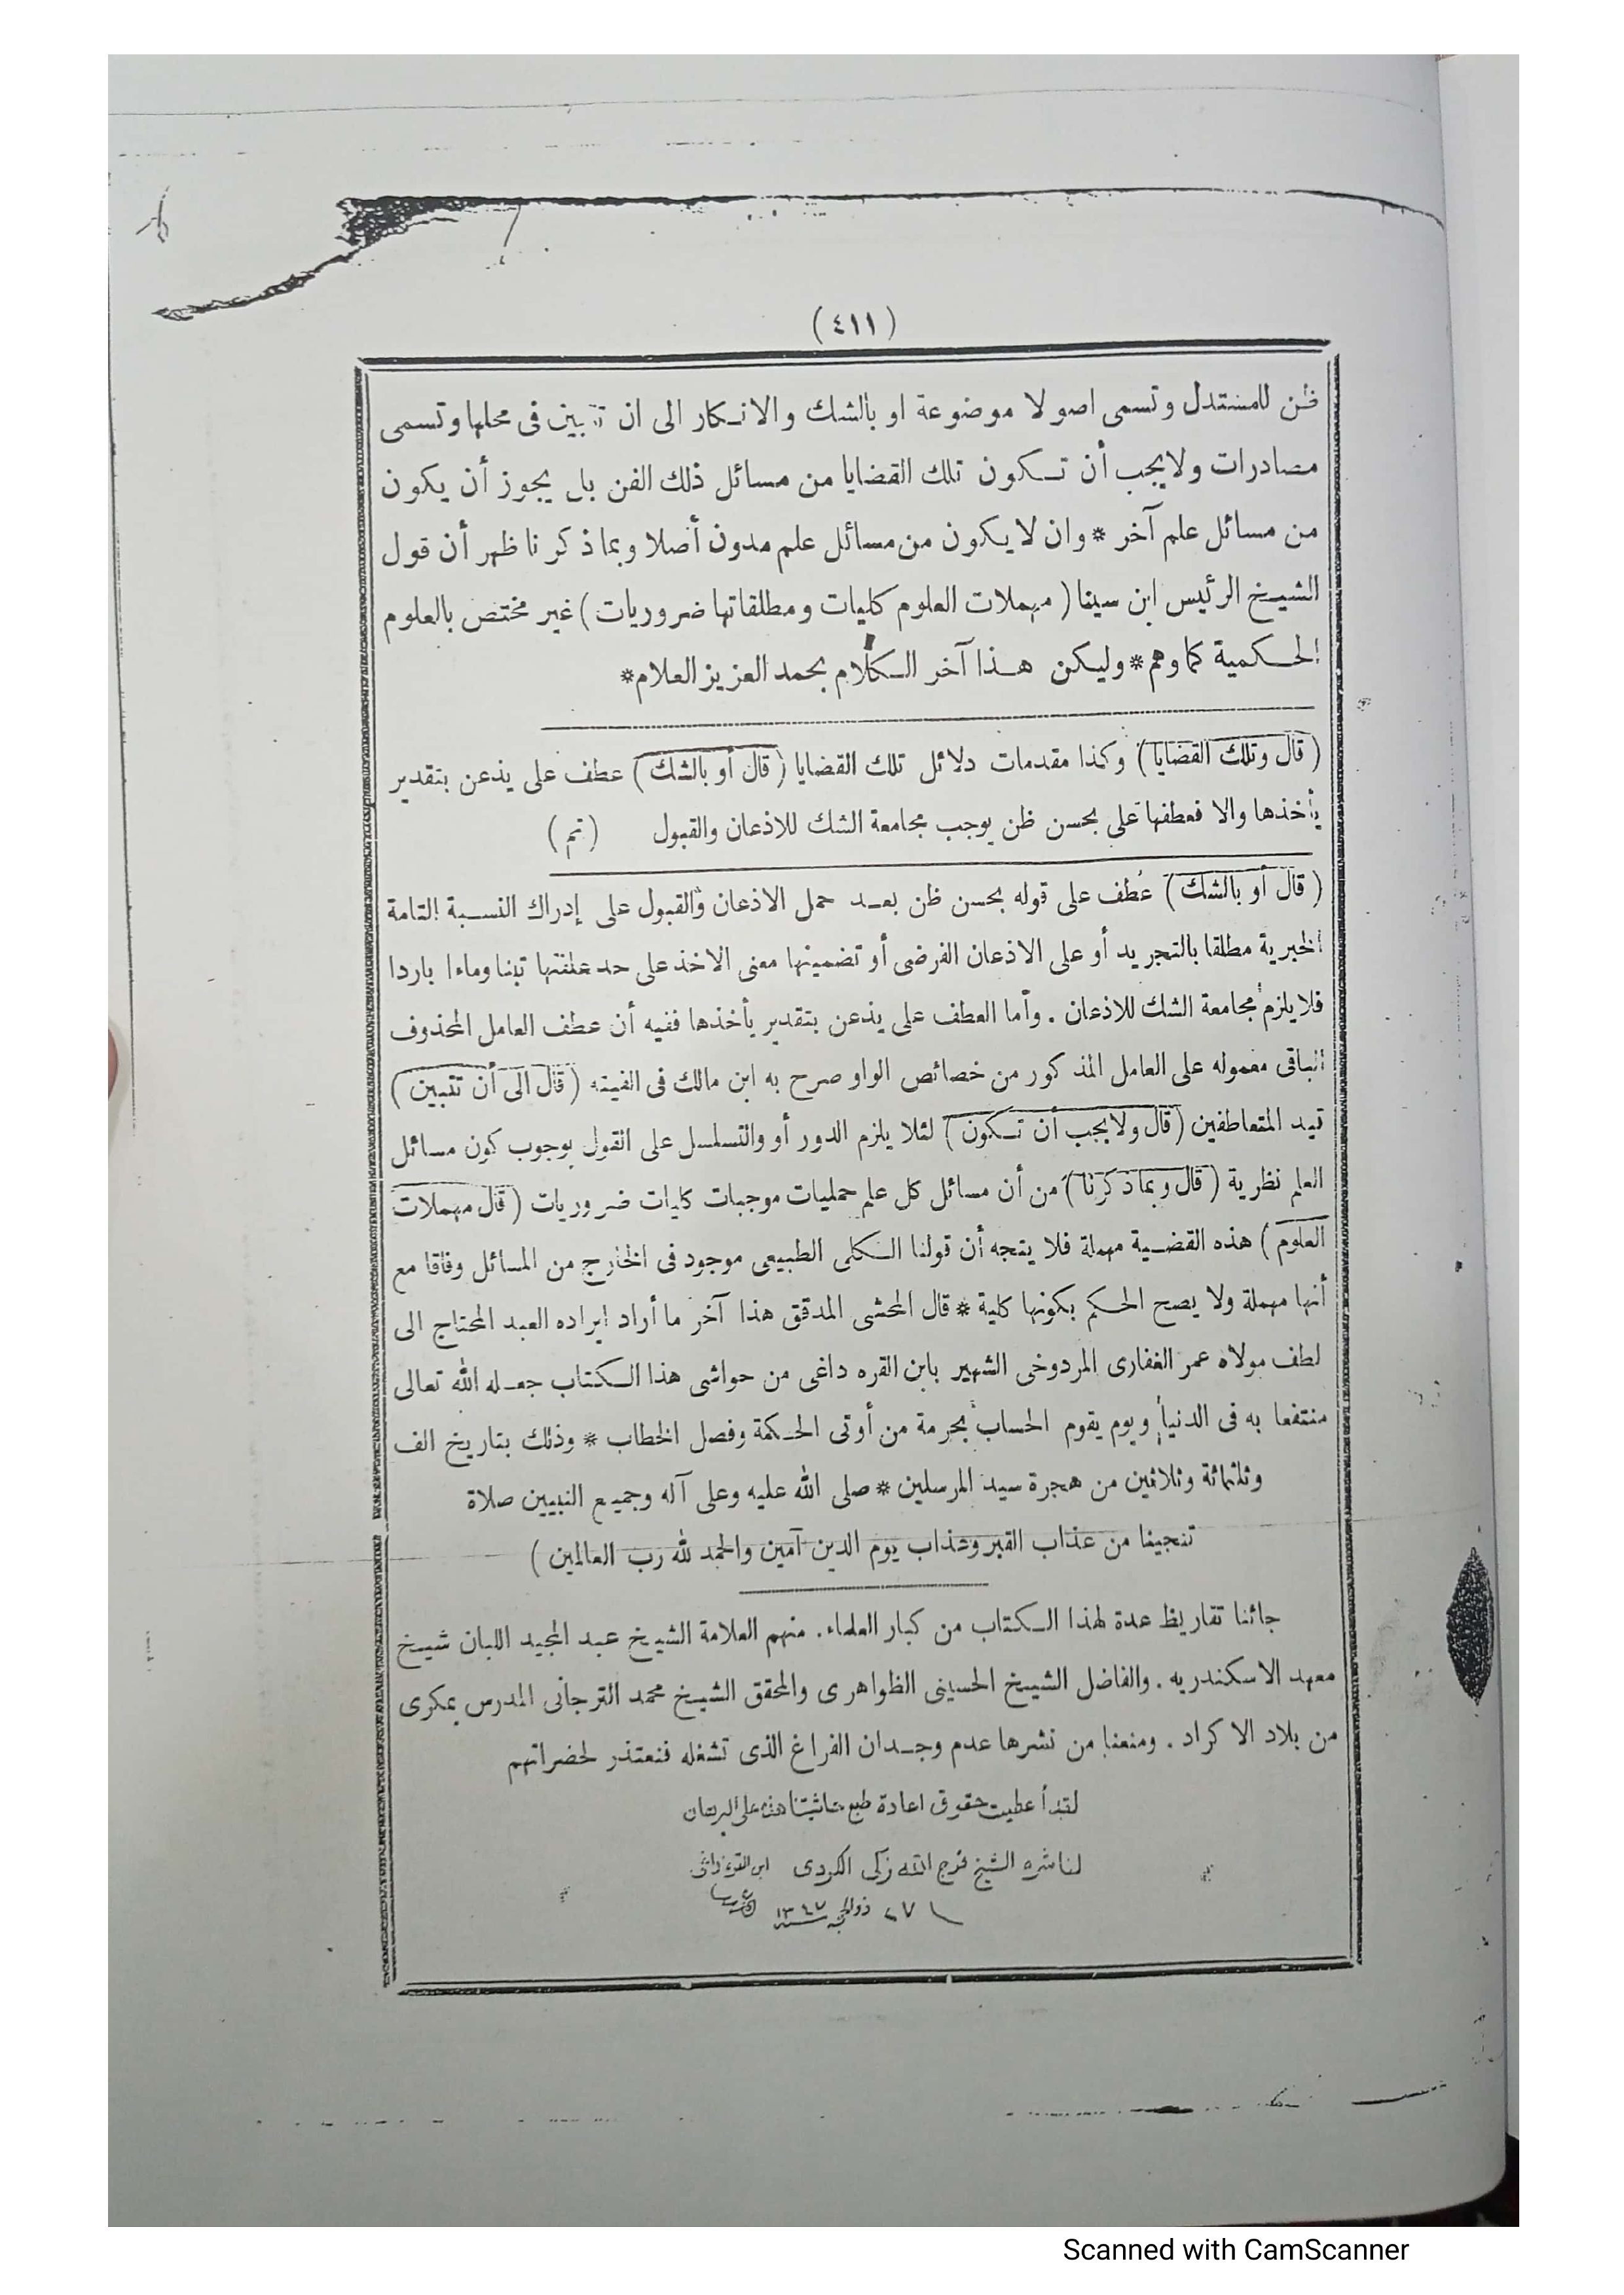 (٤١١)
ظن للمستدل وتسمى اصولا موضوعة او بالشك والانكار الى ان تتبين فى محلها وتسمى
مصادرات ولايجب أن تكون تلك القضايا من مسائل ذلك الفن بل يجوز أن يكون
من مسائل علم آخر * وان لايكون من مسائل علم مدون أصلا وبماذكرنا ظهر أن قول
الشيخ الرئيس ابن سينا (مهملات العلوم كليات ومطلقاتها ضروريات) غير مختص بالعلوم
الحكمية كما وهم * وليكن هذا آخر الكلام بحمد العزيز العلام *
(قال وتلك القضايا) وكذا مقدمات دلائل تلك القضايا (قال أو بالشك) عطف على يذعن بتقدير
يأخذها والا فعطفها على بحسن ظن يوجب مجامعة الشك للاذعان والقبول (تم)
(قال أو بالشك) عطف على قوله بحسن ظن بعد حمل الاذعان والقبول على إدراك النسبة التامة
الخبرية مطلقا بالتجريد أو على الاذعان الفرضى أو تضمينها معنى الاخذ على حد علفتها تبنا وماءا باردا
فلا يلزم مجامعة الشك للاذعان . وأما العطف على يذعن بتقدير يأخذها ففيه أن عطف العامل المحذوف
الباقى معموله على العامل المذكور من خصائص الواو صرح به ابن مالك فى الفيته (قال الى أن تتبين)
قيد المتعاطفين (قال ولايجب أن تكون) لئلا يلزم الدور أو والتسلسل على القول بوجوب كون مسائل
العلم نظرية (قال وبماذكرنا) من أن مسائل كل علم حمليات موجبات كليات ضروريات (قال مهملات
العلوم) هذه القضية مهملة فلا يتجه أن قولنا الكلى الطبيعى موجود فى الخارج من المسائل وفاقا مع
أنها مهملة ولا يصح الحكم بكونها كلية * قال المحشى المدقق هذا آخر ما أراد ايراده العبد المحتاج الى
لطف مولاه عمر الغفارى المردوخى الشهير بابن القره داغى من حواشى هذا الكتاب جعله الله تعالى
منتفعا به فى الدنيا ويوم يقوم الحساب بحرمة من أوتى الحكمة وفصل الخطاب * وذلك بتاريخ الف
وثلثمائة وثلاثين من هجرة سيد المرسلين * صلى الله عليه وعلى آله وجميع النبيين صلاة
تنجينا من عذاب القبر وعذاب يوم الدين آمين والحمد لله رب العالمين)
جائنا تقاريظ عدة لهذا الكتاب من كبار العلماء. منهم العلامة الشيخ عبد المجيد اللبان شيخ
معهد الاسكندريه . والفاضل الشيخ الحسينى الظواهرى والمحقق الشيخ محمد الترجانى المدرس بمكرى
من بلاد الاكراد . ومنعنا من نشرها عدم وجدان الفراغ الذى تشغله فنعتذر لحضراتهم
لقد أعطيت حقوق اعادة طبع حاشيتنا هذه على البرهان
لناشره الشيخ فرج الله زكى الكردى ابن القره داغى
٢٧ ذوالحجه ١٣٤٧
Scanned with CamScanner